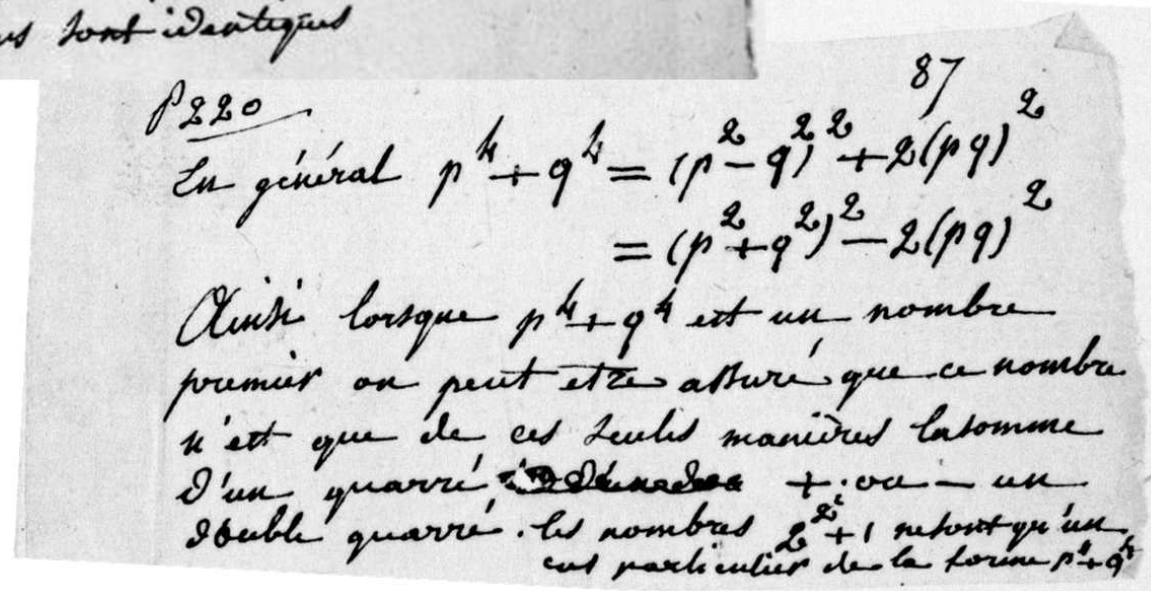 sont identiques
87
P 220
En général p⁴ + q⁴ = (p² - q²)² + 2(pq)²
= (p² + q²)² - 2(pq)²
Ainsi lorsque p⁴ + q⁴ est un nombre
premier on peut etre assuré que ce nombre
n'est que de ces seules manières la somme
d'un quarré + ou - un
double quarré. les nombres 2^2^i + 1 ne sont qu'un
cas particulier de la forme p⁴ + q⁴